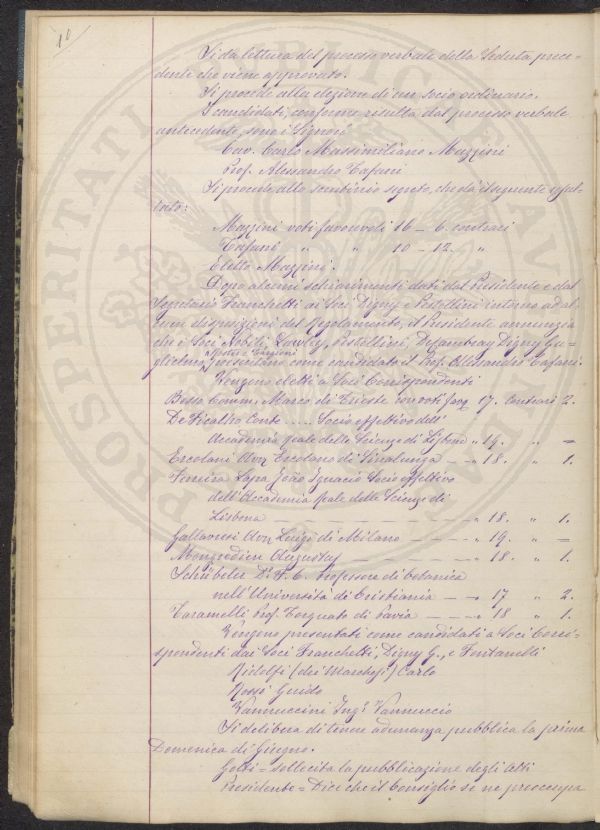 10
Si da lettura del processo verbale della Seduta prece-
dente che viene approvato.
Si procede alla elezione di un socio ordinario.
I candidati, conforme risulta dal processo verbale
antecedente, sono i Signori
Cav. Carlo Massimiliano Mazzini
Prof. Alessandro Tafani
Si procede allo scrutinio segreto, che dà il seguente resul-
tato:
Mazzini voti favorevoli 16 – 6. contrari
Tafani " " 10 – 12. "
Eletto Mazzini.
Dopo alcuni schiarimenti dati dal Presidente e dal
Segretario Franchetti ai Soci Digny e Pestellini intorno ad al-
cune disposizioni del Regolamento, il Presidente annunzia
che i Soci Nobili, Lawley, Pestellini, Digny Gu-
glielmo, presentano come candidato il Prof. Alessandro Tafani.
Vengono eletti a Soci Corrispondenti
Besso Comm. Marco di Trieste con voti favi 17. Contrari 2.
De Ficalho Conte ..... Socio effettivo dell'
Accademia Reale delle Scienze di Lisbona " 19. " –
Ercolani Avv. Ercolano di Sinalunga — — " 18. " 1.
Ferreira Lapa João Ignacio Socio effettivo
dell'Accademia Reale delle Scienze di
Lisbona — — — — — — " 18. " 1.
Gallavresi Avv. Luigi di Milano — — — " 19. " –
Mongredien Augustus — — — — — " 18. " 1.
Schübeler Dr. F. C. Professore di botanica
nell'Università di Cristiania — — " 17 " 2.
Taramelli Prof. Torquato di Pavia — — — " 18 " 1.
Vengono presentati come candidati a Soci Corri-
spondenti dai Soci Franchetti, Digny G., e Fontanelli
Ridolfi (dei Marchesi) Carlo
Rossi Guido
Vannuccini Ingr. Vannuccio
Si delibera di tenere adunanza pubblica la prima
Domenica di Giugno.
Gotti = sollecita la pubblicazione degli Atti
Presidente = Dice che il Consiglio se ne preoccupa